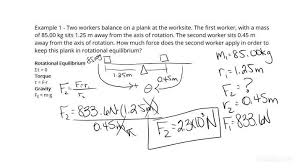 Example 1 - Two workers balance on a plank at the worksite. The first worker, with a mass
of 85.00 kg sits 1.25 m away from the axis of rotation. The second worker sits 0.45 m
away from the axis of rotation. How much force does the second worker apply in order to
keep this plank in rotational equilibrium?
Rotational Equilibrium
Στ = 0
Torque
τ = Fr
Gravity
Fg = mg
1.25m
0.45m
+ ⊖
F₂ = F₁r₁
r₂
F₂ = 833.6N(1.25m)
0.45m
m₁ = 85.00kg
r₁ = 1.25m
F₂ = ?
r₂ = 0.45m
F₁ = 833.6N